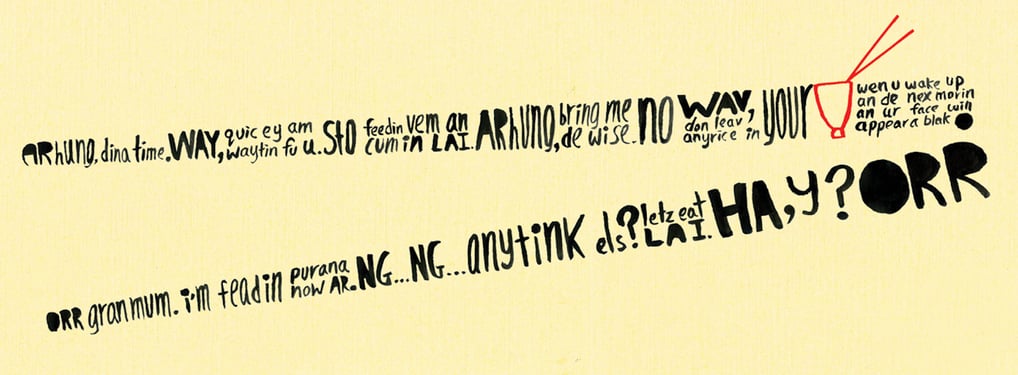 ARhUNg, dina time. WAY, quic ey am waytin fu u. StO feedin vem an cum in LAI. ARhUNg, bring me de wise. no WAY, don leav anyrice in your wen u wake up an de nex morin an ur face win appear a blak
ORR granmum. i'm feadin purana now AR. NG...NG...anytink els? letz eat LAI. HA, y? ORR